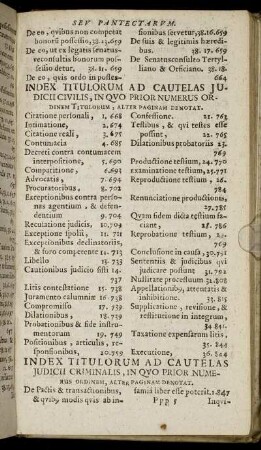 SEV PANTECTARVM.
De eo, quibus non competat
bonorũ possessio, 38.13.659
De eo, ut ex legatis senatus-
vve consultis bonorum pos-
sessio detur, 38. 14. 659
De eo, quis ordo in posses-
sionibus servetur, 38.16.659
De suis & legitimis hæredi-
bus. 38. 17. 659
De Senatusconsulto Tertyl-
liano & Orficiano. 38. 18.
664
INDEX TITULORUM AD CAUTELAS JU-
DICII CIVILIS, IN QVO PRIOR NUMERUS OR-
DINEM TITULORUM, ALTER PAGINAM DENOTAT.
Citatione personali, 1. 668
Intimatione, 2. 674
Citatione reali, 3. 675
Contumacia 4. 685
Decreti contra contumacem
interpositione, 5. 690
Comparitione, 6. 692
Advocatis, 7. 694
Procuratoribus, 8. 702
Exceptionibus contra perso-
nas agentium, & defen-
dentium 9. 704
Recusatione judicis, 10.709
Exceptione spolii, 11. 721
Exceptionibus declinatoriis,
& foro competente 12. 723
Libello 13. 733
Cautionibus judicio sisti 14.
737
Litis contestatione 15. 738
Juramento calumniæ 16. 738
Compromisso 17. 739
Dilationibus, 18. 739
Probationibus & fide instru-
mentorum 19. 749
Positionibus, articulis, re-
sponsionibus, 20.759
Confessione. 21. 763
Testibus, & qui testes esse
possunt, 22. 765
Dilationibus probatoriis 23.
769
Productione testium, 24. 770
examinatione testium, 25.771
Reproductione testium, 26.
784
Renunciatione productionis,
27.785
Quam fidem dicta testium fa-
ciant, 28. 786
Reprobatione testium, 29.
769
Conclusione in causa, 30.791
Sententiis & judicibus qui
judicare possunt 31. 792
Nullitate processuum 32. 808
Appellationibus, attentatis &
inhibitione, 33. 815
Supplicatione, revisione, &
restitutione in integrum,
34 831.
Taxatione expensarum litis,
35. 844
Executione, 36. 844
INDEX TITULORUM AD CAUTELAS
JUDICII CRIMINALIS, IN QVO PRIOR NUME-
RUS ORDINEM, ALTER PAGINAM DENOTAT.
De Pactis & transactionibus,
& quibus modis quis ab in-
famia liber esse poterit. 1.847
Ppp 5 Inqui-